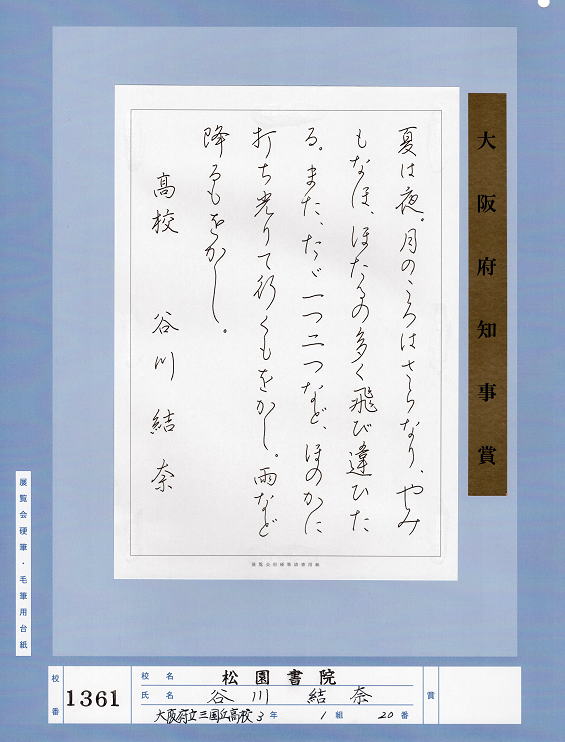 大阪府知事賞
夏は夜。月のころはさらなり、やみ
もなほ、ほたるの多く飛び違ひた
る。また、たゞ一つ二つなど、ほのかに
打ち光りて行くもをかし。雨など
降るもをかし。
高校 谷川結奈
展覧会硬筆・毛筆用台紙
校番 1361
校名 松園書院
氏名 谷川結奈
大阪府立三国丘高校3年1組20番
賞